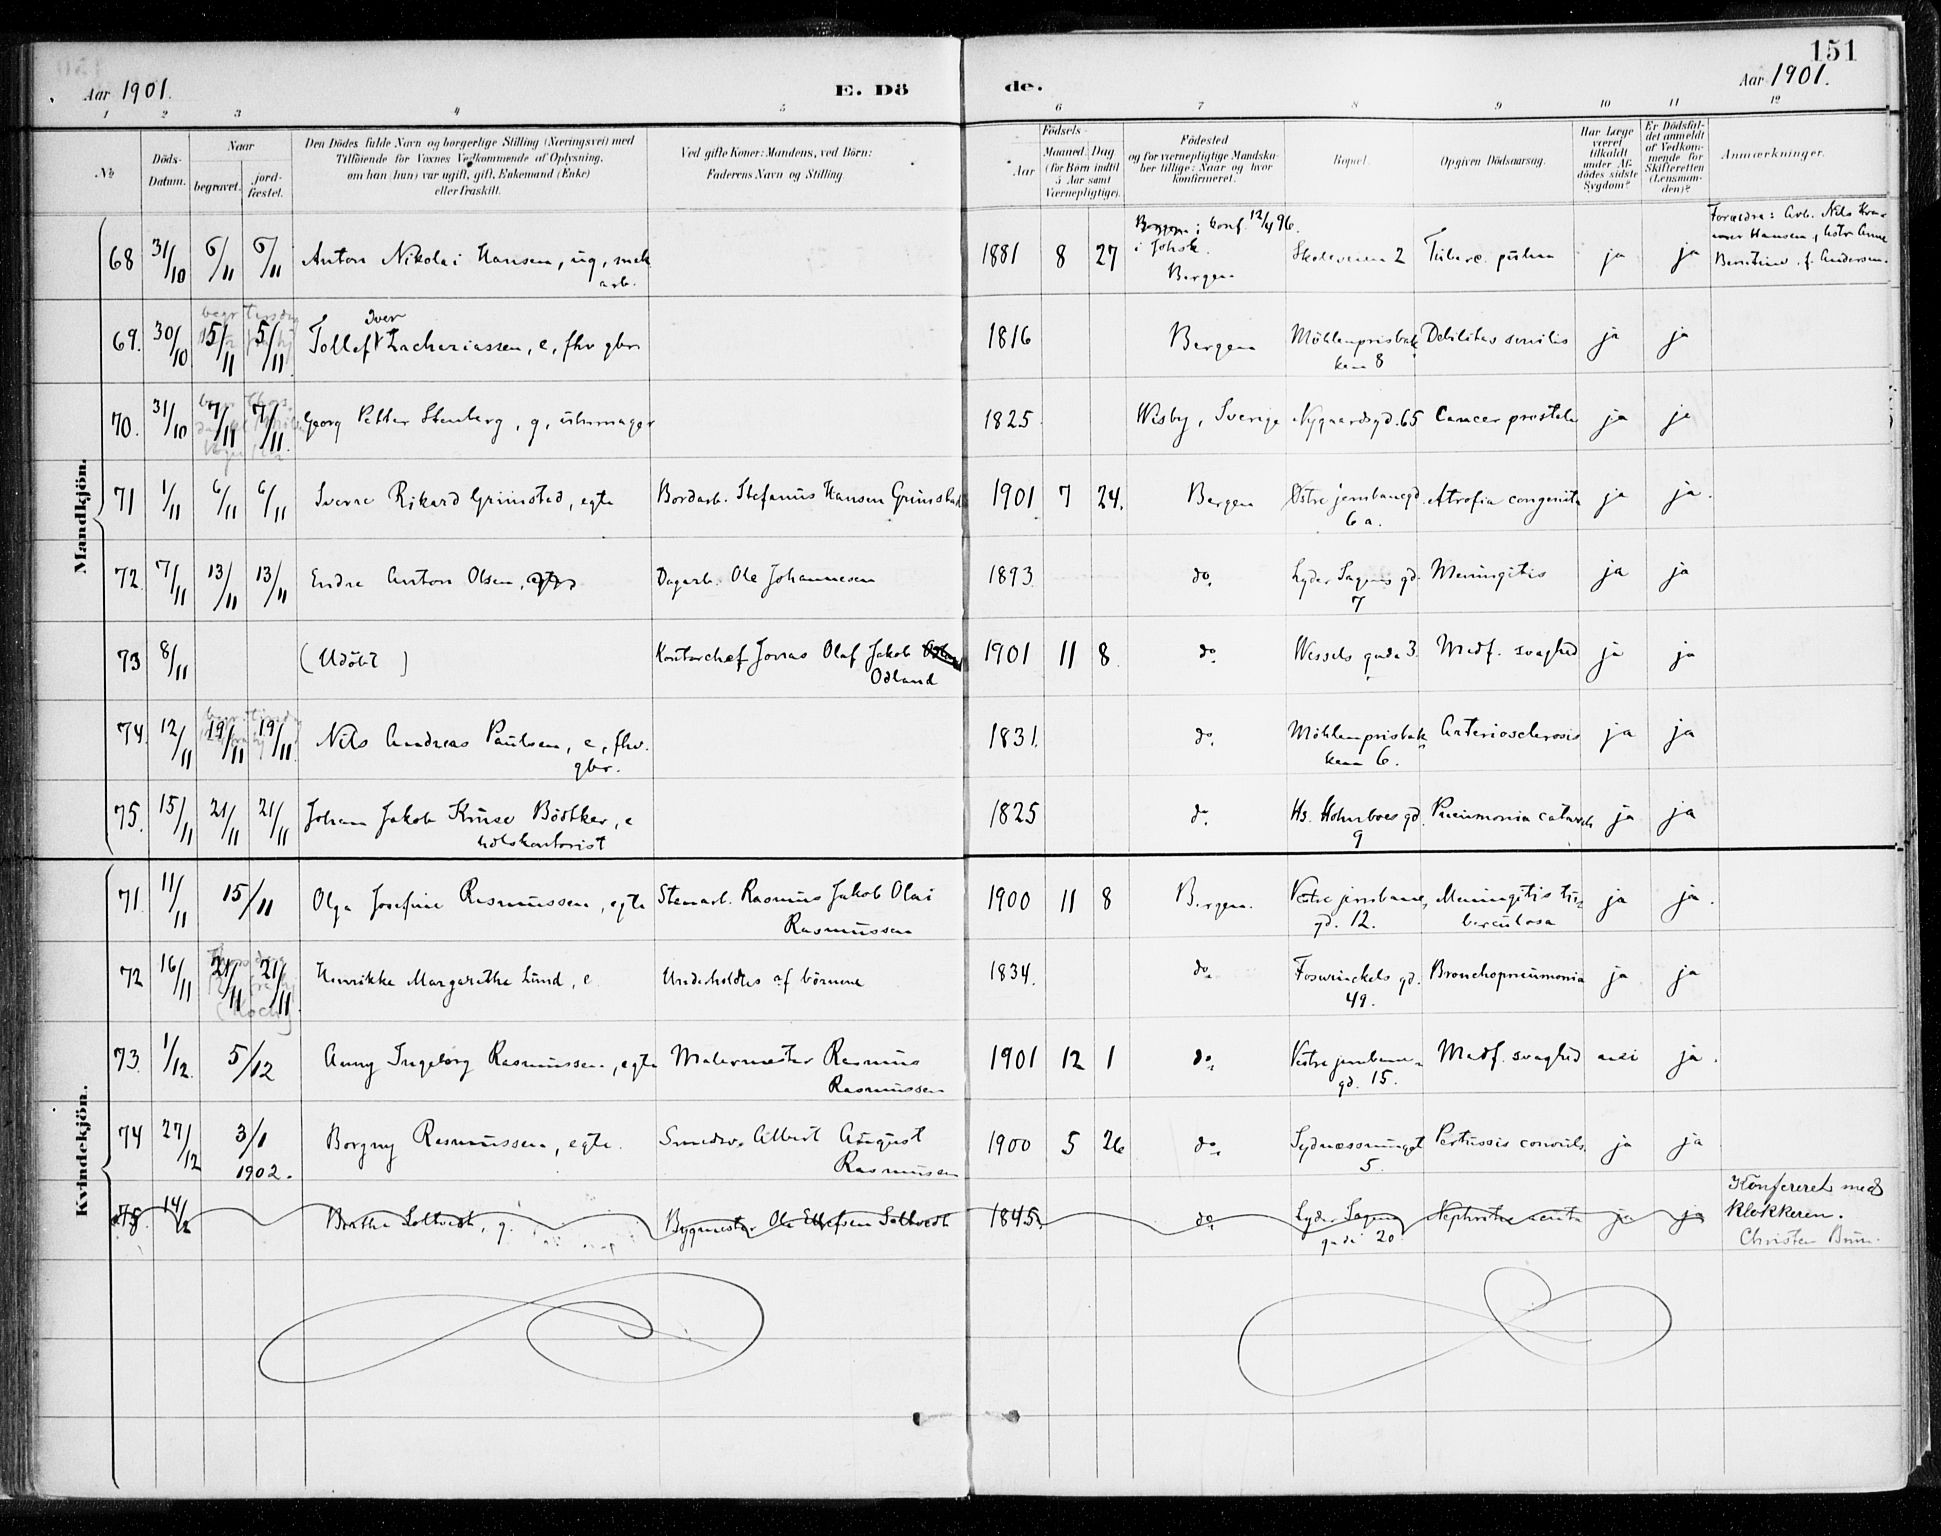 151
Aar 1901.
E. Dö
de.
Aar 1901.
1 2 3 4 5 6 7 8 9 10 11 12
№
Döds-
Datum.
Naar
begravet.
jord-
fæstet.
Den Dödes fulde Navn og borgerlige Stilling (Næringsvei) med
Tilföiende för Voxnes Vedkommende af Oplysning,
om han (hun) var ugift, gift, Enkemand (Enke)
eller fraskilt.
Ved gifte Koner: Mandens, ved Börn:
Faderens Navn og Stilling.
Födsels-
Aar
Maaned. Dag
(for Börn indtil
5 Aar samt
Værnepligtige).
Födested
og for værnepligtige Mandska-
ber tillige: Naar og hvor
konfirmeret.
Bopæl.
Opgiven Dödsaarsag.
Har Læge
været
tilkaldt
under Af-
dödes sidste
Sygdom?
Er Dödsfal-
det anmeldt
af Vedkom-
mende for
Skifteretten
(Lensman-
den)?
Anmærkninger.
Mandkjön.
68 31/10 6/11 6/11 Anton Nikolai Hansen, ug, mek
arb.
1881 8 27 konf. 12/4 96.
i Johsk.
Bergen
Skoleveien 2 Tuberc. pulm ja ja
Forældre: Arb. Nils
Hansen, Anne
Berntine f. Andersen.
69. 30/10 5/11 5/11 Tollef Iver Zachariassen, e, fhv gbr
1816 Bergen Möhlenprisbak
ken 8 Debilitas senilis ja ja
70. 31/10 7/11 7/11 Georg Petter Stenberg, g, uhrmager
1825 Wisby, Sverige Nygaardsgd. 65 Cancer prostatæ ja ja
71 1/11 6/11 6/11 Sverre Rikard Grimsted, egte Bordarb. Stefanus Hansen Grimstad
1901 7 24. Bergen Østre jernbanegd.
6 a. Atrofia congenita ja ja.
72. 7/11 13/11 13/11 Endre Anton Olsen, Dagarb. Ole Johannesen
1893 do. Lyder Sagens gd.
7 Meningitis ja ja
73 8/11 (Udöbt) Kontorchef Jonas Olaf Jakob
Odland
1901 11 8. do. Wessels gade 3. Medf. svaghed ja ja
74. 12/11 19/11 19/11 Nils Andreas Paulsen, e, fhv.
gbr.
1831. do. Möhlenprisbak
ken 6. Arteriosclerosis ja ja
75. 15/11 21/11 21/11 Johan Jakob Kruse Bödtker, e
tolkontorist
1825 do. Hs. Holmboes gd.
9 Pneumonia catarrh ja ja
Kvindekjön.
71. 11/11 15/11 Olga Josefine Rasmussen, egte Stenarb. Rasmus Jakob Olai
Rasmussen
1900 11 8 Bergen. Vestre jernbane
gd. 12. Meningitis tu-
berculosa ja ja.
72 16/11 21/11 21/11 Henrikke Margarethe Lund, e Underholdtes af börnene
1834. do. Foswinckels gd.
49. Bronchopneumonia ja ja
73. 1/12. 5/12 Anny Ingeborg Rasmussen, egte Malermester Rasmus
Rasmussen
1901 12 1 do. Vestre jernbane
gd. 15. Medf. svaghed nei ja.
74 27/12 3/1
1902. Borgny Rasmussen, egte. Smedsv. Albert August
Rasmussen
1900 5 26 do. Sydnæssmuget
5. Pertussis convuls. ja ja
75. 14/2 Berthe Soltvedt, g. Bygmester Ole Ellefsen Soltvedt
1845. do Lyder Sagens
gade 20. Nephritis acuta ja ja
Konfereret med
Klokkeren.
Christen Brun.